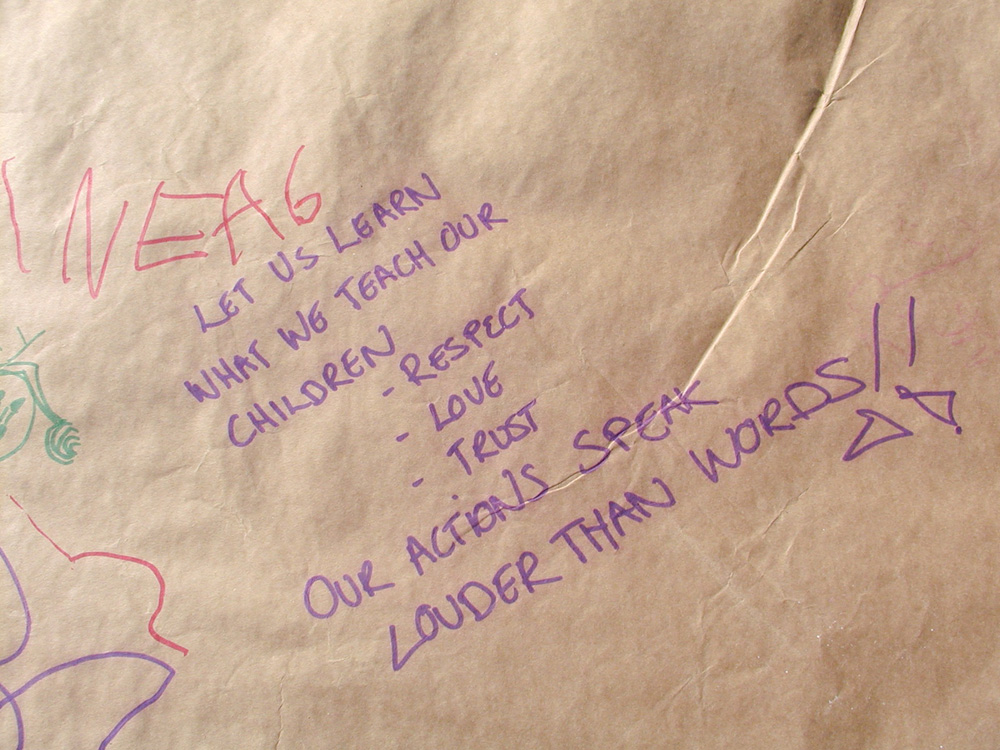 INEA6
LET US LEARN
WHAT WE TEACH OUR
CHILDREN
- RESPECT
- LOVE
- TRUST
OUR ACTIONS SPEAK
LOUDER THAN WORDS!!